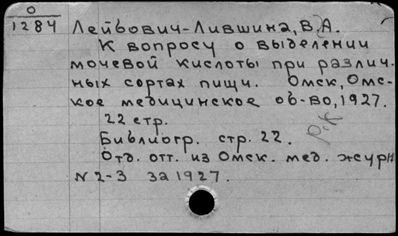 0
1284
Лейбович-Лившина, В.А.
К вопросу о выделении
мочевой кислоты при различ-
ных сортах пищи. Омск, Омс-
кое медицинское об-во, 1927.
22 стр.
Библиогр. стр. 22.
Р.К
Отд. отт. из Омск. мед. журн
N 2-3 за 1927.